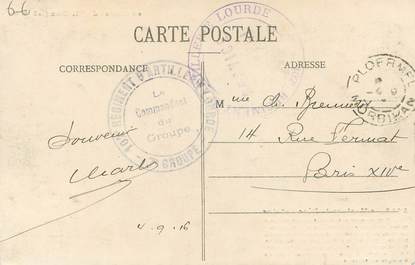 66
CARTE POSTALE
CORRESPONDANCE
ADRESSE
LOURDE
D'ARTILLERIE LOURDE
Le
Commandant
du
Groupe
GROUPE
PLOERMEL
MORBIHAN
Souvenir
4.9.16
Mme Ch.
14 Rue Fermat
Paris XIVe